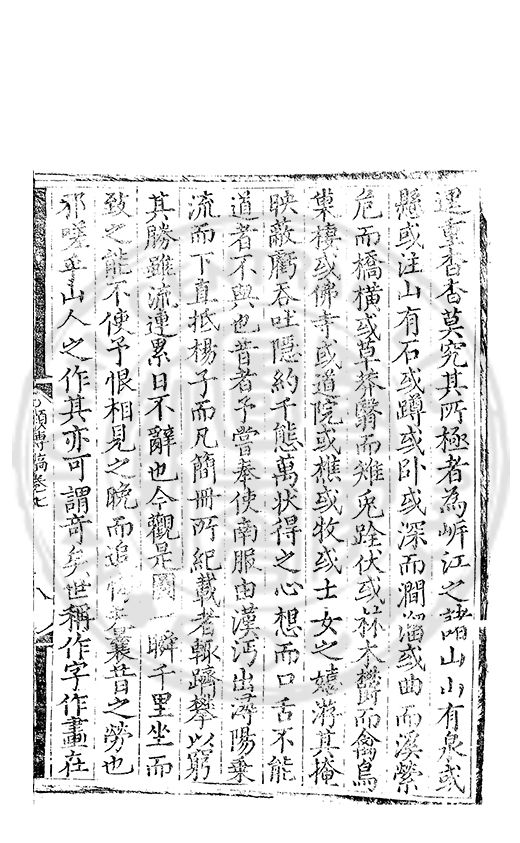 遝重杳杳莫究其所極者為岍江之諸山山有泉或
懸或注山有石或蹲或卧或深而澗溜或曲而溪縈
危而橋横或草莽翳而雉兎跧伏或林木欝而禽鳥
巢棲或佛寺或道院或樵或牧或士女之嬉游其掩
映蔽虧吞吐隱約千態萬状得之心想而口舌不能
道者不與也昔者予嘗奉使南服由漢沔出潯陽乗
流而下直抵楊子而凡簡冊所紀載者輙躋攀以窮
其勝雖流連累日不辭也今觀是圖一瞬千里坐而
致之能不使予恨相見之晚而追 曩昔之勞也
邪嗟乎山人之作其亦可謂竒矣世稱作字作畫在
類博稿卷七
八